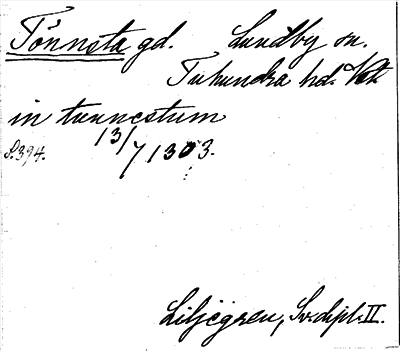 Tönnsta gd. Lundby sn.
Tuhundra hd. Vstm
in tunnestum
S. 394. 13/7 1303.
Liljegren, Sv. dipl. II.